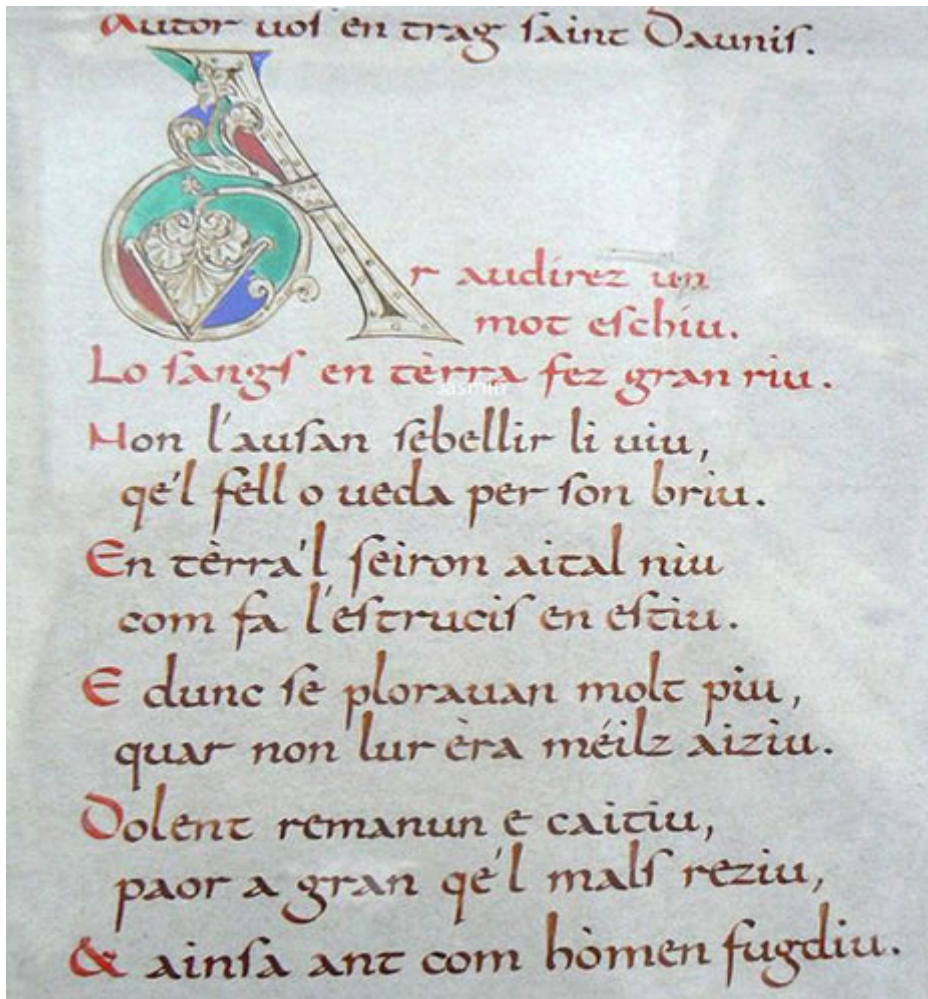 Autor uos en trag saint Daunis.
Ar audirez un
mot eschiu.
Lo sangs en tèrra fez gran riu.
Non l'ausan sebellir li uiu,
qe'l fell o ueda per son briu.
En tèrra'l seiron aital niu
com fa l'estrucis en estiu.
E dunc se plorauan molt piu,
quar non lur èra méilz aiziu.
Dolent remanun e caitiu,
paor a gran qe'l mals reziu,
& ainsa ant com hòmen fugdiu.
Jasmin